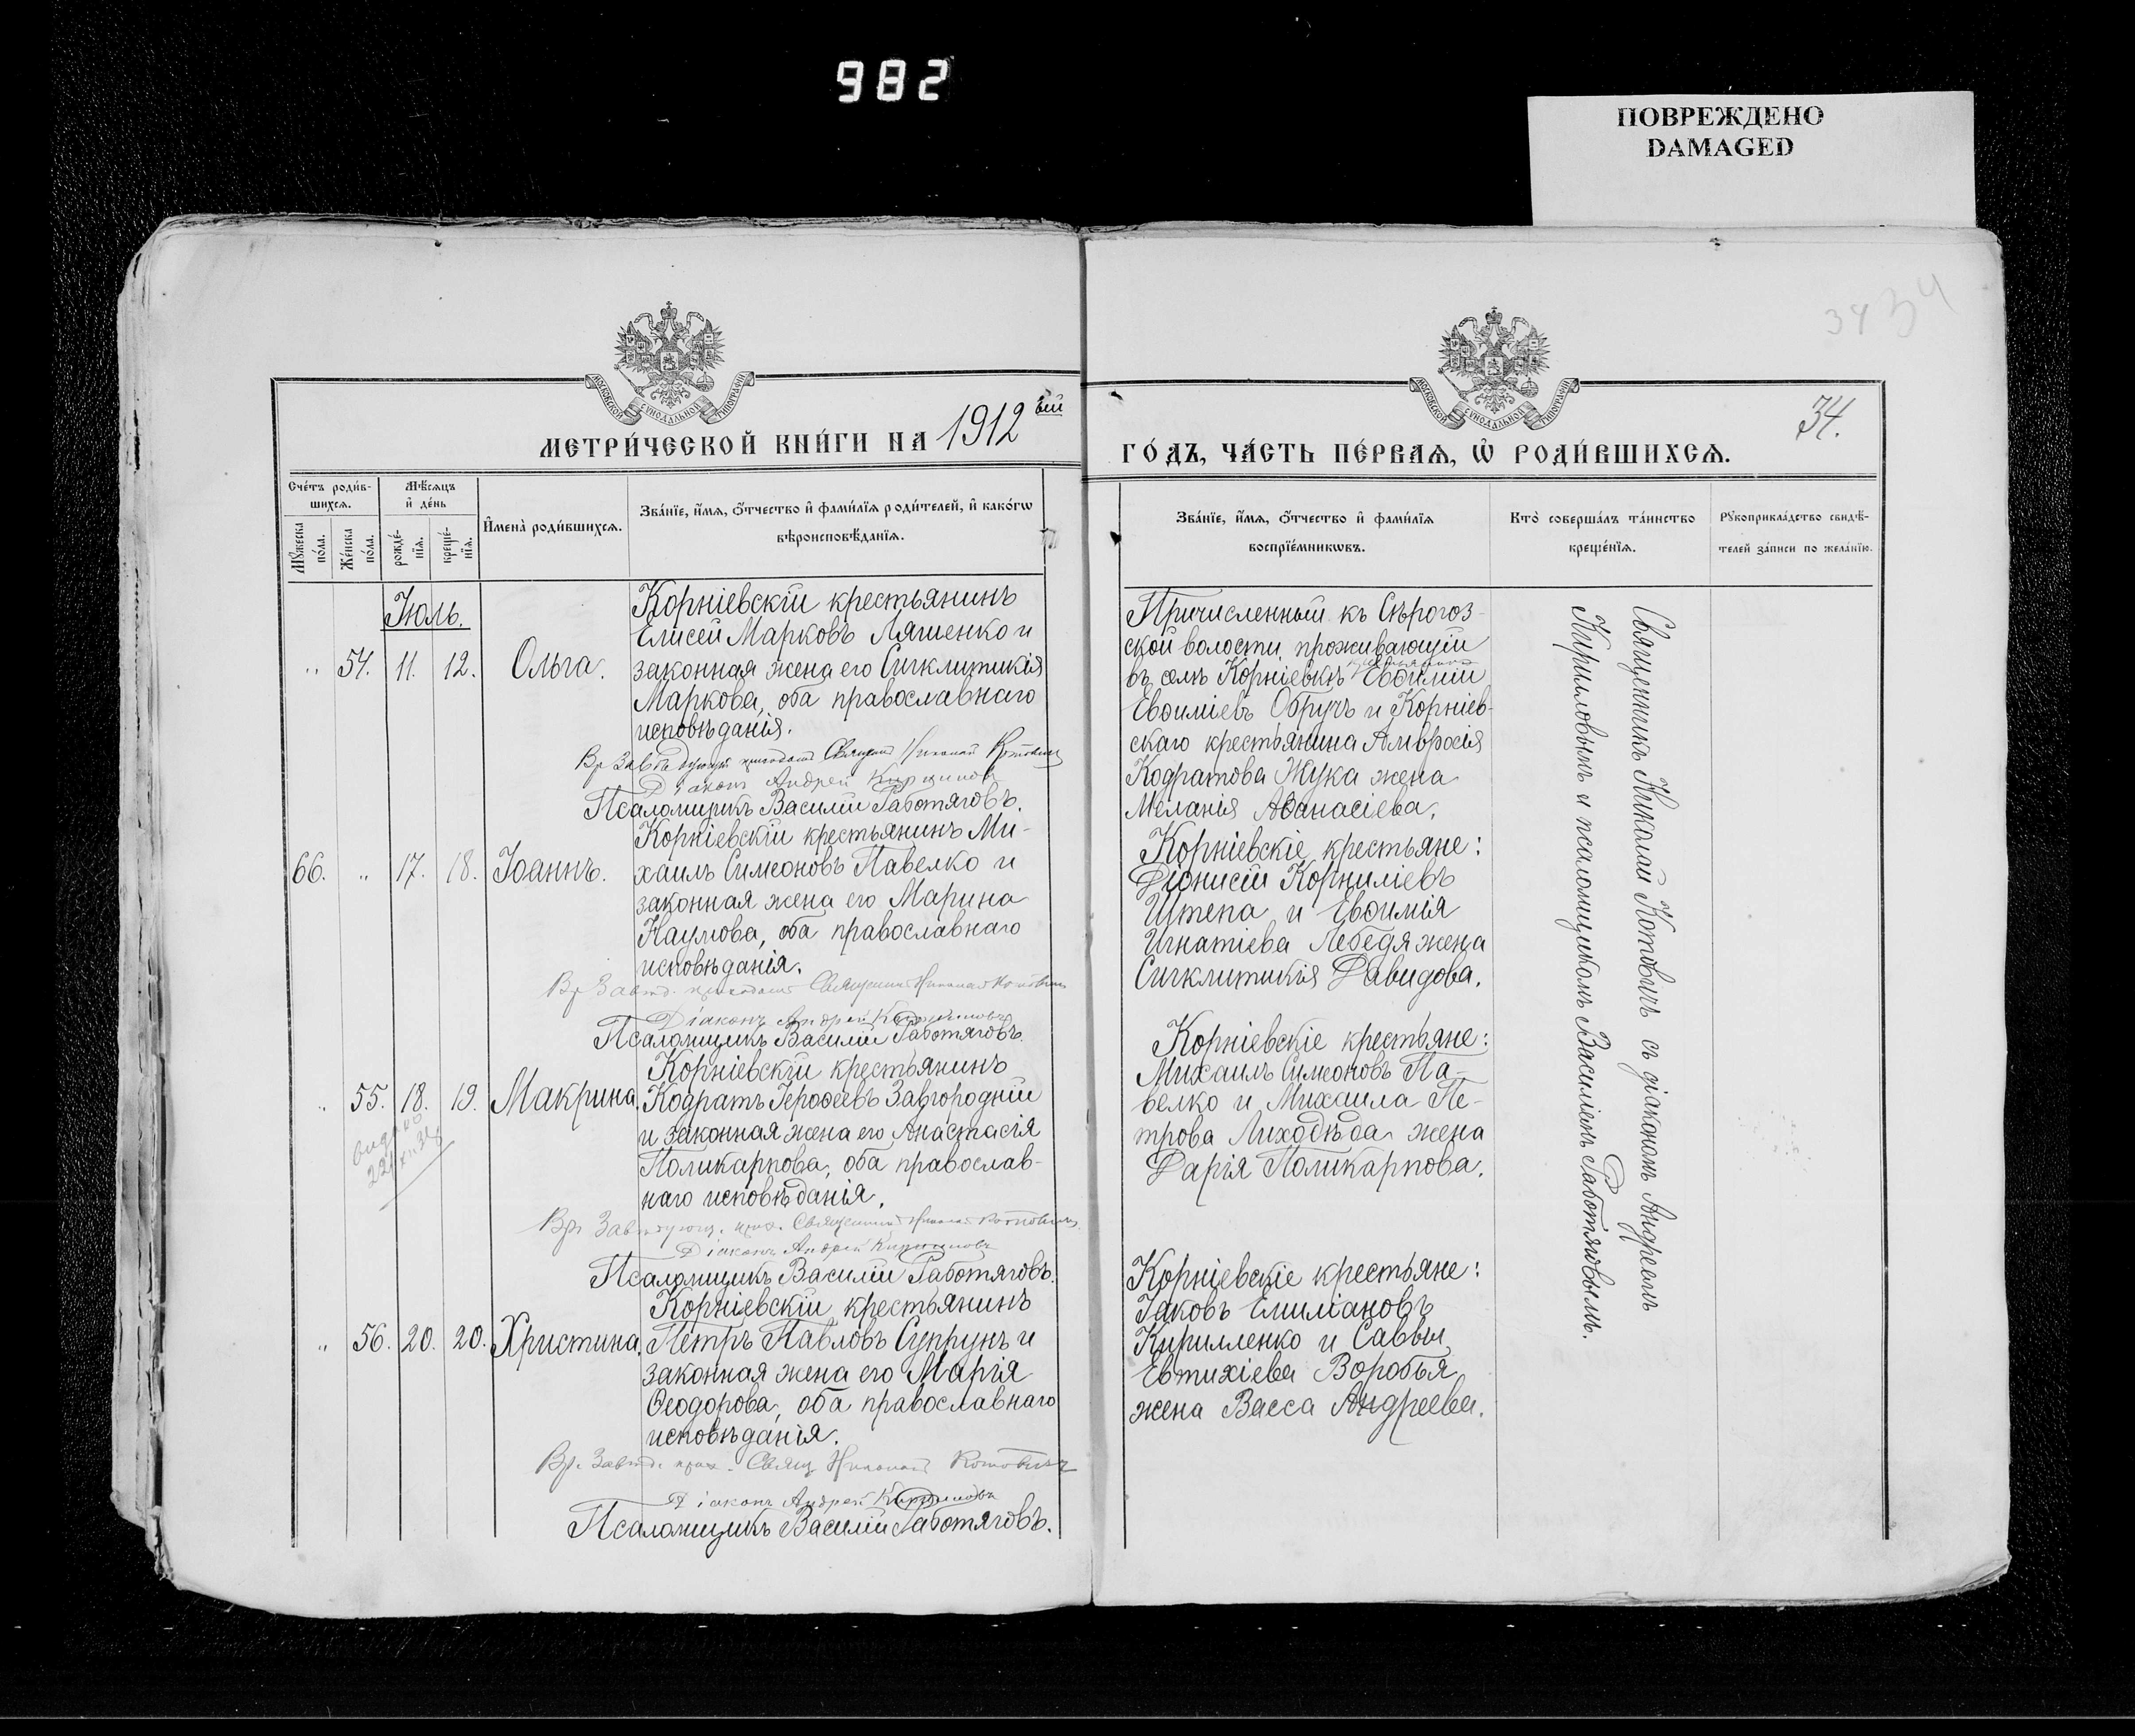 982
ПОВРЕЖДЕНО
DAMAGED
34
34
МОСКОВСКОЙ СУНОДАЛЬНОЙ ТИПОГРАФІИ
МОСКОВСКОЙ СУНОДАЛЬНОЙ ТИПОГРАФІИ
МЕТРИ́ЧЕСКОЙ КНИ́ГИ НА 1912ый
ГО́ДЪ, ЧА́СТЬ ПЕ́РВАѦ, Ѽ РОДИ́ВШИХСѦ.
34.
Сче́тъ роди́в-
шихсѧ.
Мꙋ́жеска
по́ла.
Же́нска
по́ла.
Мѣ́сѧцъ
и҆ де́нь
рожде́-
нїѧ.
креще́-
нїѧ.
И҆мена̀ роди́вшихсѧ.
Зва́нїе, и҆́мѧ, ѻ҆́тчество и҆ фами́лїѧ роди́телей, и҆ како́гѡ
вѣроисповѣ́данїѧ.
Зва́нїе, и҆́мѧ, ѻ҆́тчество и҆ фами́лїѧ
воспрїе́мникѡвъ.
Кто̀ соверша́лъ та́инство
креще́нїѧ.
Рꙋкоприкла́дство свидѣ́-
телей за́писи по жела́нїю.
Іюль.
„ 54. 11. 12. Ольга.
Корніевскій крестьянинъ
Елисей Марковъ Ляшенко и
законная жена его Сигклитикія
Маркова, оба православнаго
исповѣданія.
Вр Завѣдующій приходомъ Священникъ Николай Котовичъ
Діаконъ Андрей Кирилловъ
Псаломщикъ Василій Работяговъ.
Причисленный къ Сѣрогоз-
ской волости, проживающій
въ селѣ Корніевкѣ Евѳимій
Евѳиміевъ Обручъ и Корніев-
скаго крестьянина Амвросія
Кодратова Жука жена
Меланія Аѳанасіева.
66. „ 17. 18. Іоаннъ.
Корніевскій крестьянинъ Ми-
хаилъ Симеоновъ Павелко и
законная жена его Марина
Наумова, оба православнаго
исповѣданія.
Вр Завѣд. приходомъ Священникъ Николай Котовичъ
Діаконъ Андрей Кирилловъ
Псаломщикъ Василій Работяговъ.
Корніевскіе крестьяне:
Діонисій Корниліевъ
Штепа и Евѳимія
Игнатіева Лебедя жена
Сигклитикія Давидова.
„ 55. 18. 19. Макрина.
22/XII
Корніевскій крестьянинъ
Кодратъ Іероѳеевъ Завгородній
и законная жена его Анастасія
Поликарпова, оба православ-
наго исповѣданія.
Вр. Завѣдующ. прих. Священникъ Николай Котовичъ
Діаконъ Андрей Кирилловъ
Псаломщикъ Василій Работяговъ.
Корніевскіе крестьяне:
Михаилъ Симеоновъ Па-
велко и Михаила Пе-
трова Лиходѣда жена
Дарія Поликарпова.
„ 56. 20. 20. Христина.
Корніевскій крестьянинъ
Петръ Павловъ Супрунъ и
законная жена его Марія
Ѳеодорова, оба православнаго
исповѣданія.
Вр. Завѣд. прих. Свящ Николай Котовичъ
Діаконъ Андрей Кирилловъ
Псаломщикъ Василій Работяговъ.
Корніевскіе крестьяне:
Іаковъ Емиліановъ
Кирилленко и Саввы
Евтихіева Воробья
жена Васса Андреева.
Священникъ Николай Котовичъ съ діакономъ Андреемъ
Кирилловымъ и псаломщикомъ Василіемъ Работяговымъ.